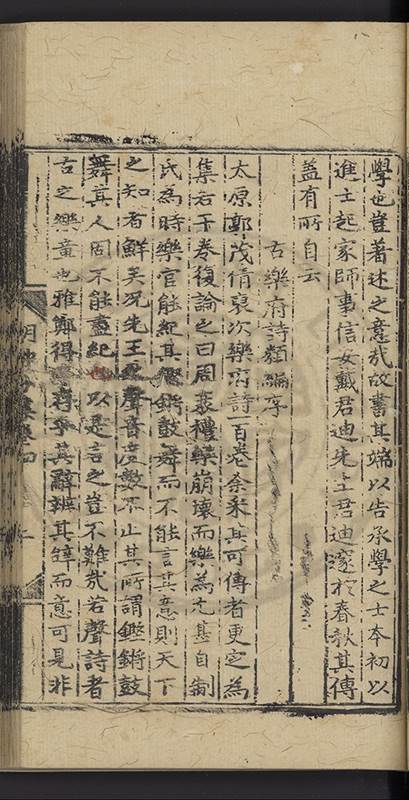 學也豈著述之意哉故書其端以告承學之士本初以
進士起家師事信安戴君迪先生君迪深於春秋其傳
蓋有所自云
古樂府詩類編序
太原郭茂倩裒次樂府詩一百卷余采其可傳者更定為
集若干卷復論之曰周衰禮樂崩壞而樂為尤甚自制
氏為時樂官能紀其鏗鏘鼓舞而不能言其意則天下
之知者鮮矣况先王之聲音度數不止其所謂鏗鏘鼓
舞其人固不能盡紀也以是言之豈不難哉若聲詩者
古之樂章也雅鄭得存乎其辭辨其辭而意可見非